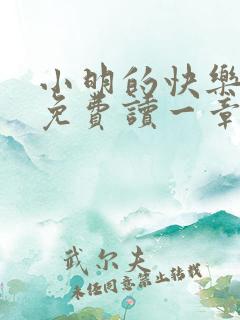 小明的快樂
免費讀一章
武尔夫
未经同意禁止转载